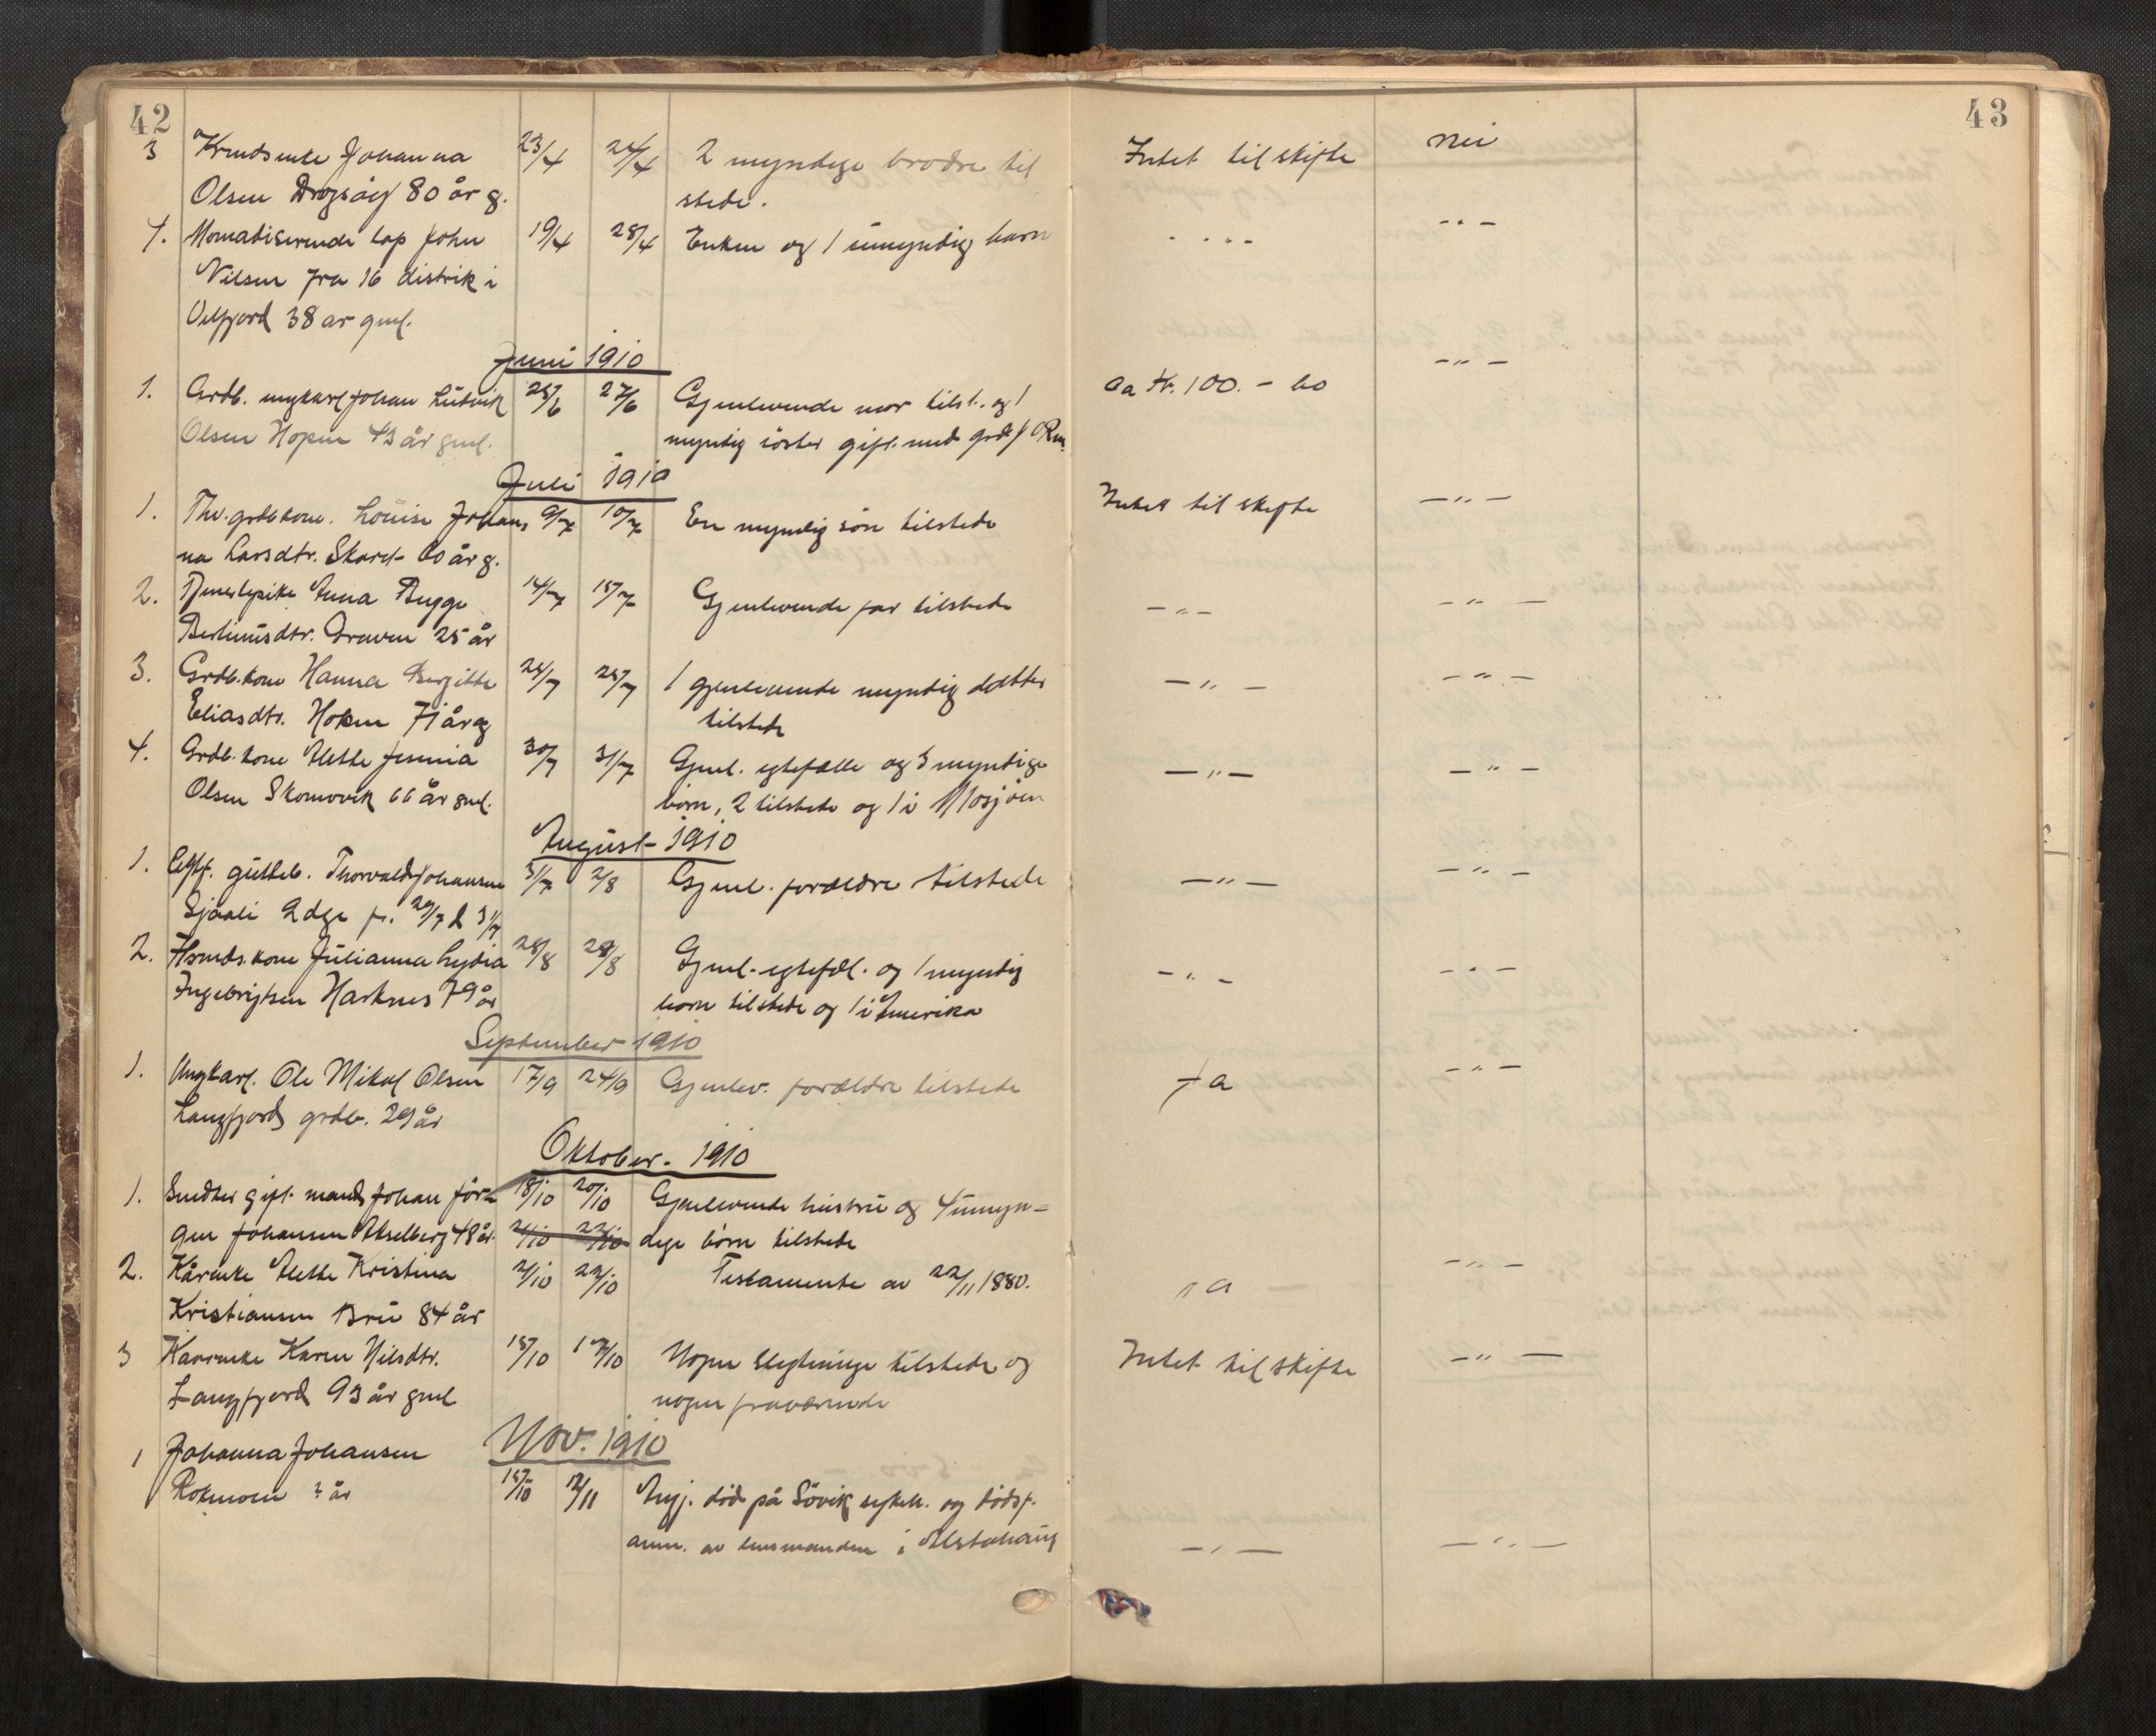 42
43
3 Krnds enke Johanna 23/4 24/4 2 myndige brødre til Intet til skifte nei
Olsen 80 år g. stede.
4. Nomadiserende lap John 19/4 28/4 Enken og 1 umyndig barn - " - - " -
Nilsen fra 16 distrik i
Velfjord 38 ar gml.
Juni 1910
1. Grdb. ungkarl Johan Ludvik 25/6 27/6 Gjenlevende mor tilst. og 1 ca Kr. 100.- bo - " -
Olsen Hopen 43 år gml. myndig søster gift. med
Juli 1910
1. grdb kone. Louise Johan, 9/7 10/7 En myndig søn tilstede Intet til skifte - " -
na Larsdtr. Skaret 60 år g.
2. Tjenestepike Anna Bugge 14/7 15/7 Gjenlevende far tilstede - " - - " -
Bertinusdtr. Graven 25 år
3. Grdb. kone Hanna Bergitte 24/7 25/7 1 gjenlevende myndig datter - " - - " -
Eliasdtr. Hopen 71 år g tilstede
4. Grdb. kone Alette Jennia 30/7 31/7 Gjenl. egtefælle og 3 myndige - " - - " -
Olsen Skomovik 66 år gml. børn, 2 tilstede og 1 i Mosjøen
August 1910
1. Egtf. gutteb. Thorvald Johansen 31/7 2/8 Gjenl. forældre tilstede - " - - " -
Sjaali 2 dge f. 29/7 d 31/7
2. Hsmds. kone Julianna Lydia 28/8 29/8 Gjenl. egtefæl. og 1 myndig - " - - " -
Ingebrigtsen Harknes 79 år barn tilstede og 1 i Amerika
September 1910
1. Ungkarl. Ole Mikal Olsen 17/9 24/9 Gjenlev. forældre tilstede ja - " -
Langfjord grdb. 29 år
Oktober. 1910
1. gift. mand Johan Jör- 18/10 20/10 Gjenlevende hustru og 4 umyn-
gen Johansen Akselberg 48 år. 21/10 22/10 dige børn tilstede
2. Kårenke Alette Kristina 21/10 22/10 Testamente av 22/11 1880. ja - " -
Kristiansen Bru 84 år
3 Kaarenke Karen Nilsdtr. 15/10 17/10 Nogen slegtninge tilstede og Intet til skifte - " -
Langfjord 93 år gml nogen fraværende
Nov. 1910
1 Johanna Johansen
? år 15/10 Angj. død på Søvik sykeh. og dødsf.
anm. av lensmanden i Alstahaug - " - - " -